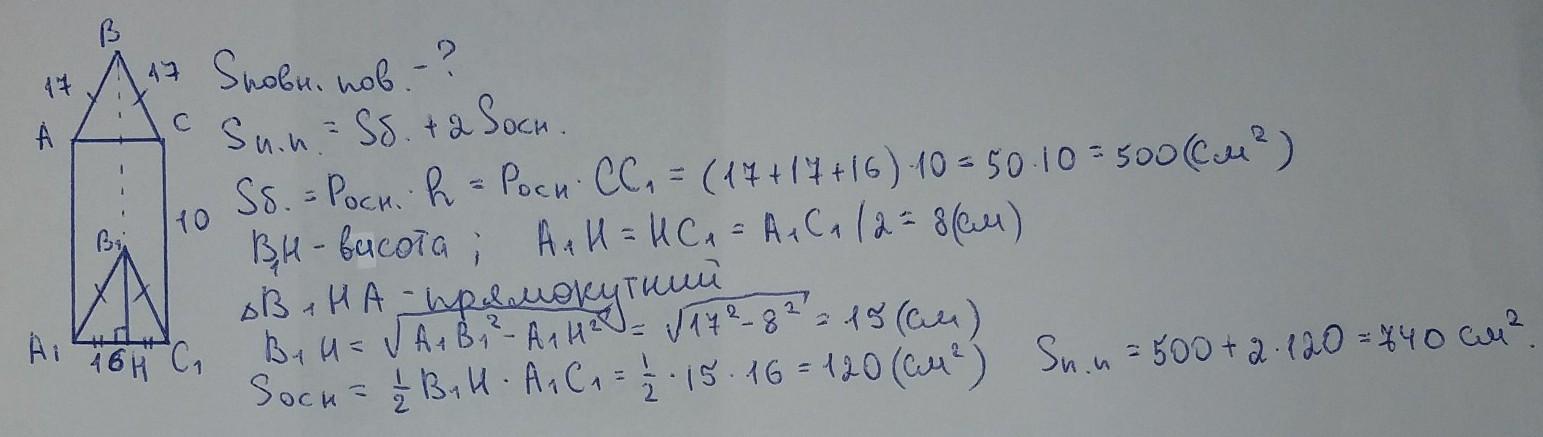 B
17 17
A C
10
B₁
A₁ 16 H C₁
Sповн. пов. - ?
Sп.п. = Sб. + 2Sосн.
Sб. = Pосн. · h = Pосн · CC₁ = (17+17+16)·10 = 50·10 = 500(см²)
B₁H - висота ; A₁H = HC₁ = A₁C₁/2 = 8(см)
△B₁HA - прямокутний
B₁H = √A₁B₁² - A₁H² = √17² - 8² = 15(см)
Sосн = ½ B₁H · A₁C₁ = ½ · 15 · 16 = 120(см²) Sп.п = 500 + 2·120 = 740 см².